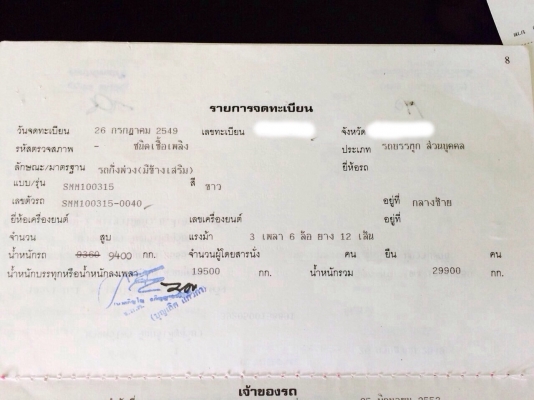 8
รายการจดทะเบียน
วันจดทะเบียน 26 กรกฎาคม 2549 เลขทะเบียน จังหวัด
รหัสตรวจสภาพ - ชนิดเชื้อเพลิง ประเภท รถบรรทุก ส่วนบุคคล
ลักษณะ/มาตรฐาน รถกึ่งพ่วง(มีข้างเสริม) ยี่ห้อรถ
แบบ/รุ่น SMM100315 สี ขาว
เลขตัวรถ SMM100315-0040 อยู่ที่ กลางซ้าย
ยี่ห้อเครื่องยนต์ เลขเครื่องยนต์ อยู่ที่
จำนวน สูบ แรงม้า 3 เพลา 6 ล้อ ยาง 12 เส้น
น้ำหนักรถ 9350 9400 กก. จำนวนผู้โดยสารนั่ง คน ยืน คน
น้ำหนักบรรทุกหรือน้ำหนักลงเพลา 19500 กก. น้ำหนักรวม 29900 กก.
เจ้าของรถ